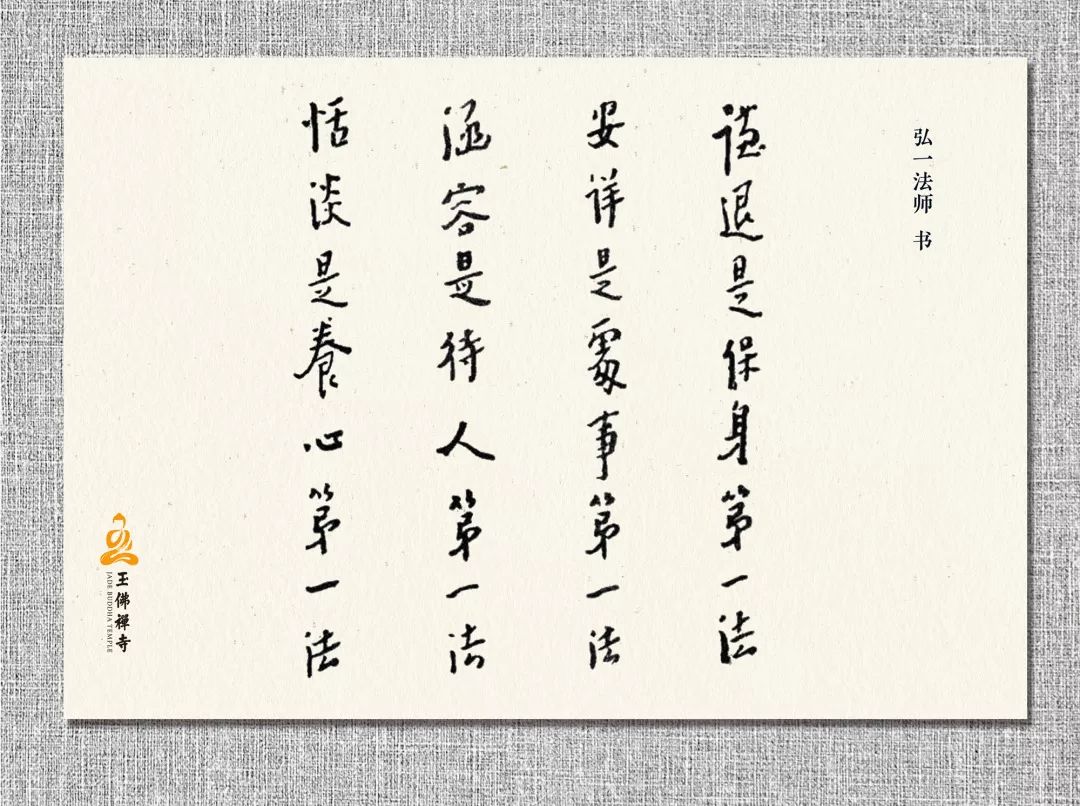 弘一法师 书
謙退是保身第一法
安詳是處事第一法
涵容是待人第一法
恬淡是養心第一法
玉佛禪寺
JADE BUDDHA TEMPLE